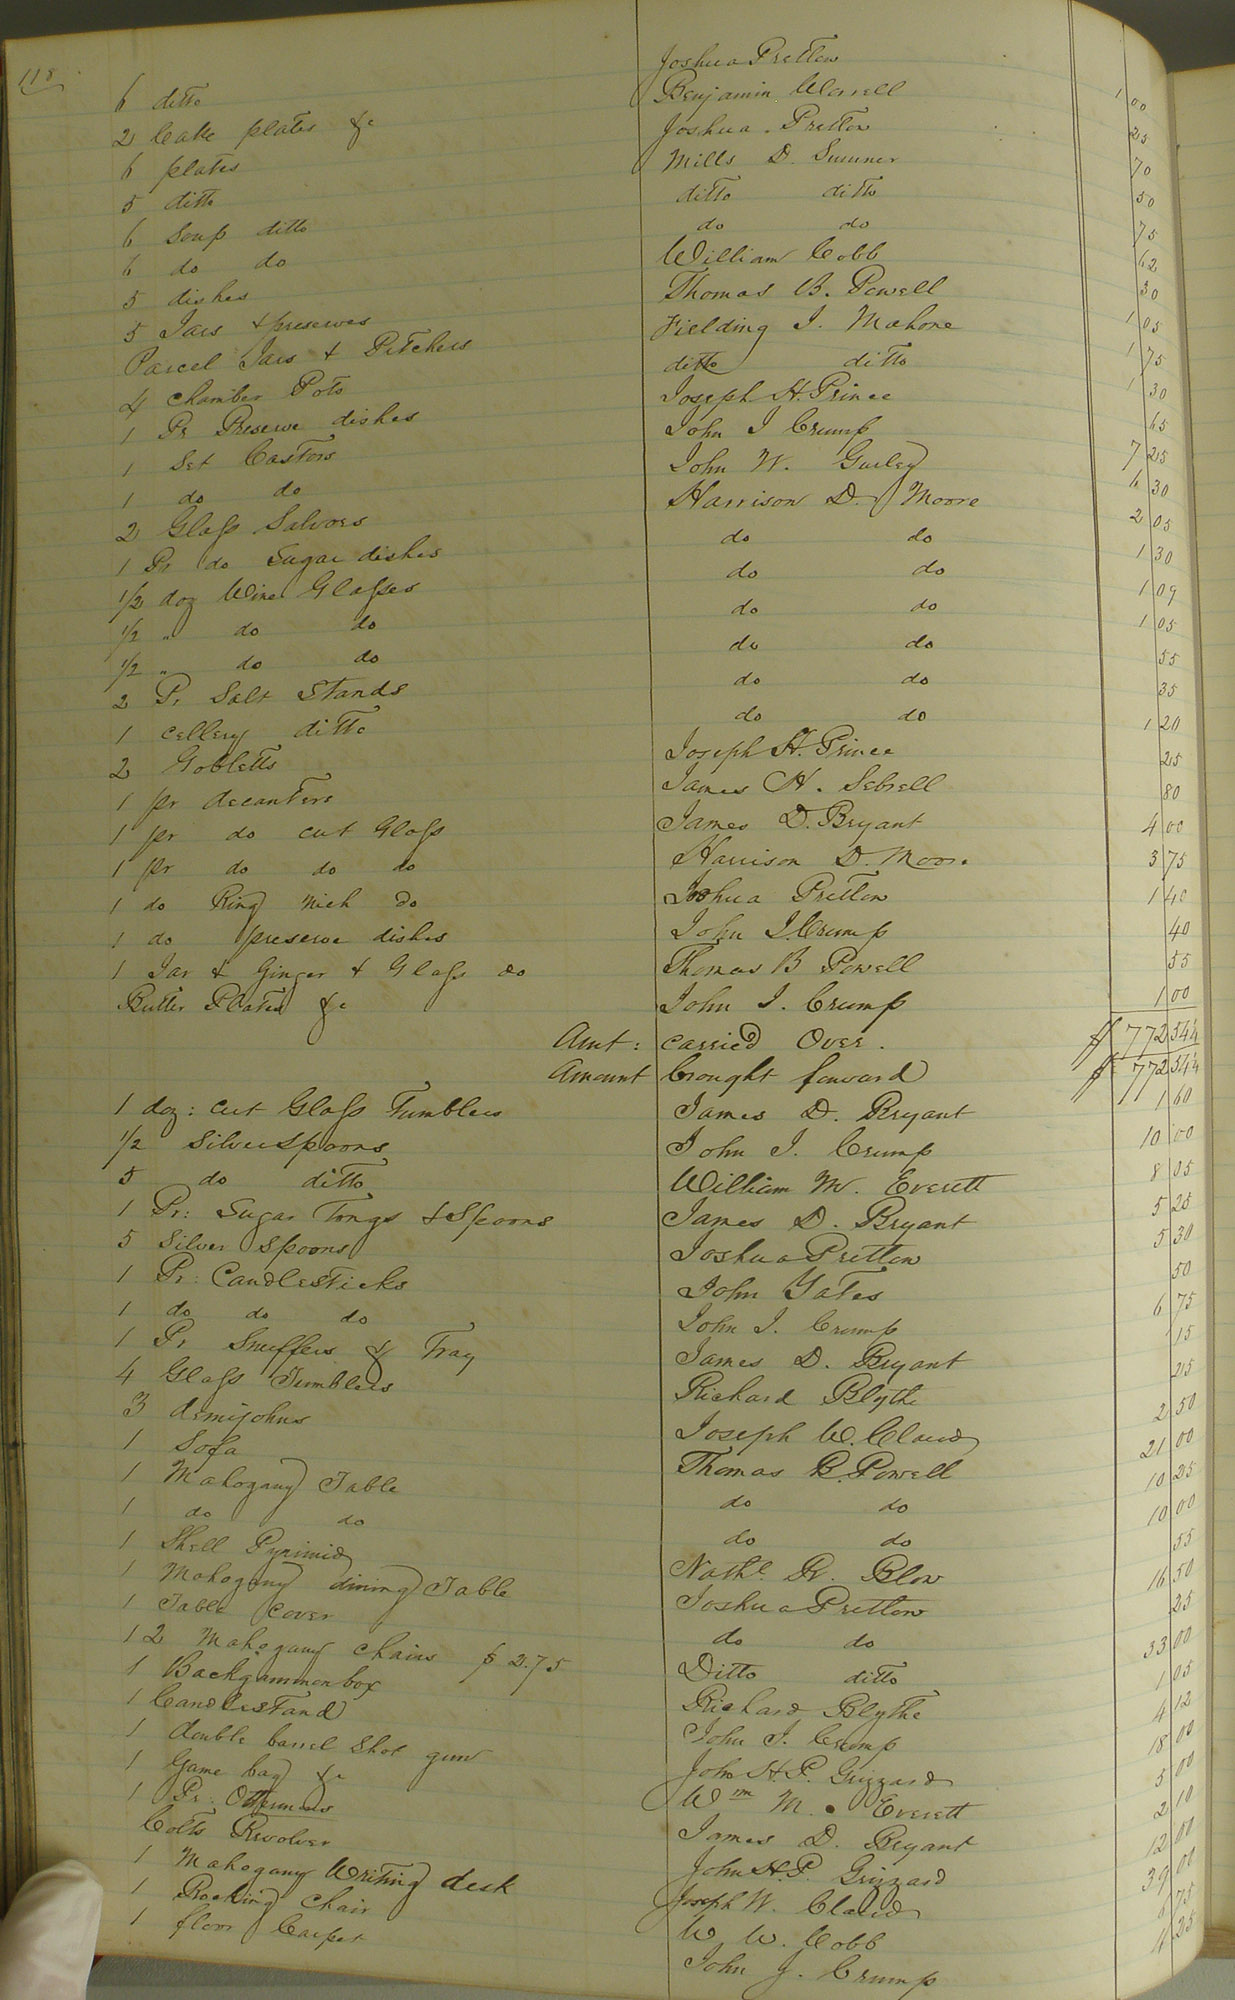 118
6 ditto Joshua Pretlow 1 00
2 Cake plates &c Benjamin Worrell 25
6 plates Joshua Pretlow 70
5 ditto Mills D. Sumner 50
6 Soup ditto ditto ditto 75
6 do do do do 62
5 dishes William Cobb 30
5 Jars & preserves Thomas B. Powell 1 05
Parcel Jars & Pitchers Fielding J. Mahone 1 75
4 chamber Pots ditto ditto 1 30
1 Pr Preserve dishes Joseph H. Prince 65
1 Set Castors John J Crump 7 25
1 do do John W. Gurley 6 30
2 Glass Salvors Harrison D. Moore 2 05
1 Pr do Sugar dishes do do 1 30
1/2 doz Wine Glasses do do 1 09
1/2 " do do do do 1 05
1/2 " do do do do 55
2 Pr Salt Stands do do 35
1 cellery ditto do do 1 20
2 Gobletts Joseph H. Prince 25
1 pr decanters James H. Sebrell 80
1 pr do cut Glass James D. Bryant 4 00
1 pr do do do Harrison D. Moore 3 75
1 do Ring Neck do Joshua Pretlow 1 40
1 do preserve dishes John J. Crump 40
1 Jar & Ginger & Glass do Thomas B Powell 55
Butter Plates &c John J. Crump 1 00
Amt: carried Over. $ 772 54 1/4
Amount brought forward $ 772 54 1/4
1 doz: cut Glass Tumblers James D. Bryant 1 60
1/2 Silver Spoons John J. Crump 10 00
5 do ditto William M. Everett 8 05
1 Pr: Sugar Tongs & Spoons James D. Bryant 5 25
5 Silver Spoons Joshua Pretlow 5 30
1 Pr: Candlesticks John Yates 50
1 do do do John J. Crump 6 75
1 Pr Snuffers & Tray James D. Bryant 15
4 Glass Tumblers Richard Blythe 25
3 demijohns Joseph W. Claud 2 50
1 Sofa Thomas B. Powell 21 00
1 Mahogany Table do do 10 25
1 do do do do 10 00
1 Shell Pyrimid Nathl. Blow 55
1 Mahogany dining Table Joshua Pretlow 16 50
1 Table Cover do do 25
12 Mahogany chairs $ 2.75 Ditto ditto 33 00
1 Backgammon box Richard Blythe 1 05
1 Candlestand John J. Crump 4 12
1 double barrel Shot gun John H. P. Grizzard 18 00
1 Game bag &c Wm M. Everett 5 00
1 Pr: Ottermans James D. Bryant 2 10
Colts Revolver John H. P. Grizzard 12 00
1 Mahogany Writing desk Joseph W. Claud 39 00
1 Rocking Chair W. W. Cobb 75
1 floor Carpet John J. Crump 25